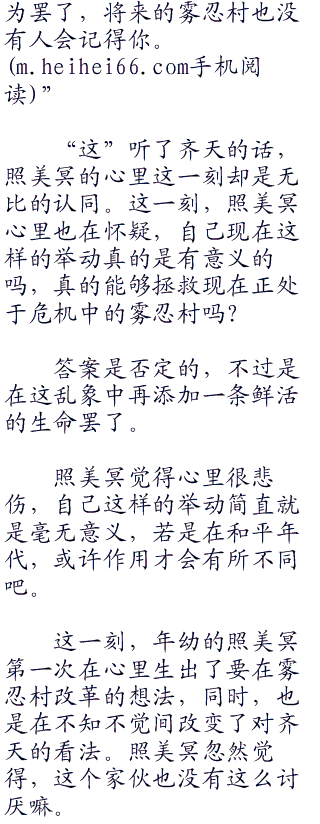 为罢了，将来的雾忍村也没
有人会记得你。
(m.heihei66.com手机阅
读)”
“这”听了齐天的话，
照美冥的心里这一刻却是无
比的认同。这一刻，照美冥
心里也在怀疑，自己现在这
样的举动真的是有意义的
吗，真的能够拯救现在正处
于危机中的雾忍村吗？
答案是否定的，不过是
在这乱象中再添加一条鲜活
的生命罢了。
照美冥觉得心里很悲
伤，自己这样的举动简直就
是毫无意义，若是在和平年
代，或许作用才会有所不同
吧。
这一刻，年幼的照美冥
第一次在心里生出了要在雾
忍村改革的想法，同时，也
是在不知不觉间改变了对齐
天的看法。照美冥忽然觉
得，这个家伙也没有这么讨
厌嘛。